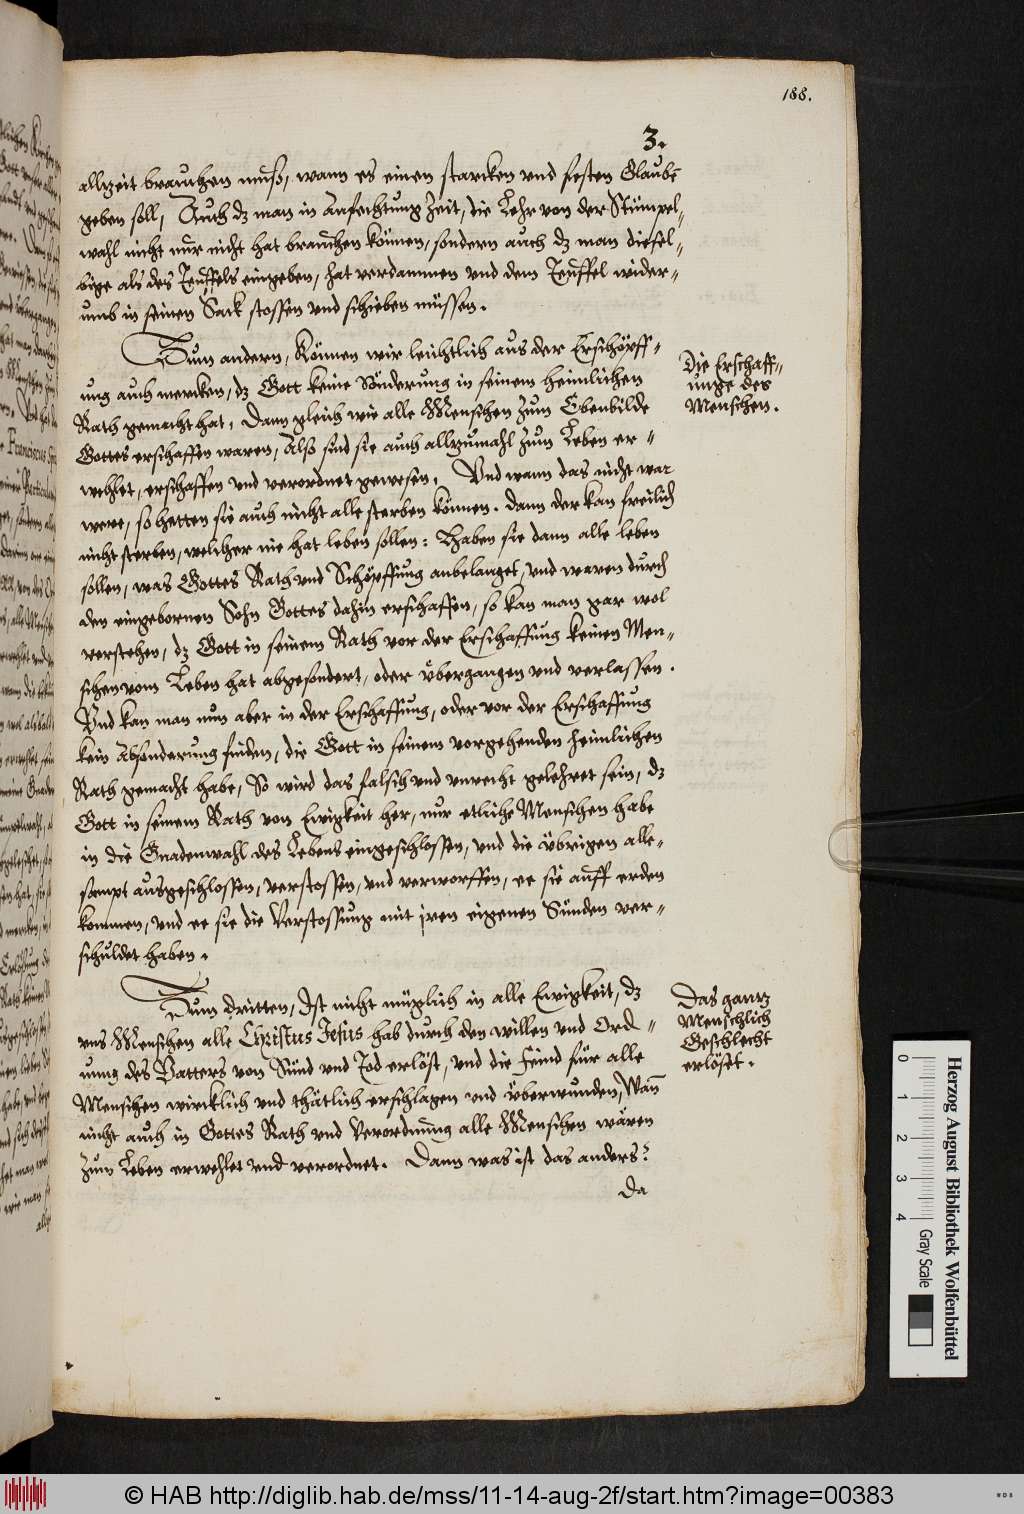 188.
3.
allzeit brauchen muß, wann es einen starcken vnd festen Glaubē
geben soll, Auch dz man in Anfechtung Zeit, die Lehr von der Stümpel-
wahl nicht nur nicht hat brauchen können, sondern auch dz man diesel-
bige als des Teuffels eingeben, hat verdammen vnd dem Teuffel wider-
umb in seinen Sack stossen vnd schieben müssen.
Zum andern, Können wir leichtlich aus der Erschöpff-
ung auch mercken, dz Gott keine Sönderung in seinem heimlichen
Rath gemacht hat, Dann gleich wie alle Menschen zum Ebenbilde
Gottes erschaffen waren, Also sind sie auch allzumahl zum Leben er-
wehlet, erschaffen vnd verordnet gewesen. Vnd wann das nicht war
were, so hetten sie auch nicht alle sterben können. dann der kan freilich
nicht sterben, welcher nie hat leben sollen: Haben sie dann alle leben
sollen, was Gottes Rath vnd Schöpffung anbelanget, vnd waren durch
den eingebornen Sohn Gottes dahin erschaffen, so kan man gar wol
verstehen, dz Gott in seinem Rath vor der Erschaffung keinen Men-
schen vom Leben hat abgesondert, oder übergangen vnd verlassen.
Vnd kan man nun aber in der Erschaffung, oder vor der Erschaffung
kein Absonderung finden, die Gott in seinem vorgehenden heimlichen
Rath gemacht habe, So wird das falsch vnd vnrecht gelehret sein, dz
Gott in seinem Rath von Ewigkeit her, nur etliche Menschen habe
in die Gnadenwahl des Lebens eingeschlossen, vnd die übrigen alle-
sampt ausgeschlossen, verstossen, vnd verworffen, ee sie auff erden
kommen, vnd ee sie die Verstossung mit iren eigenen Sünden ver-
schuldet haben.
Die Erschaff-
unge des
Menschen.
Zum dritten, Ist nicht müglich in alle Ewigkeit, dz
vns Menschen alle Christus Jesus hab durch den willen vnd Ord-
nung des Vatters von Sünd vnd Tod erlöst, vnd die Feind für alle
Menschen wircklich vnd thätlich erschlagen vnd überwunden, Wañ
nicht auch in Gottes Rath vnd Verordnung alle Menschen wären
zum Leben erwehlet vnd verordnet. Dann was ist das anders?
Da
Das gantz
Menschlich
Geschlecht
erlöset.
Herzog August Bibliothek Wolfenbüttel
0 1 2 3 4
Gray Scale
© HAB http://diglib.hab.de/mss/11-14-aug-2f/start.htm?image=00383